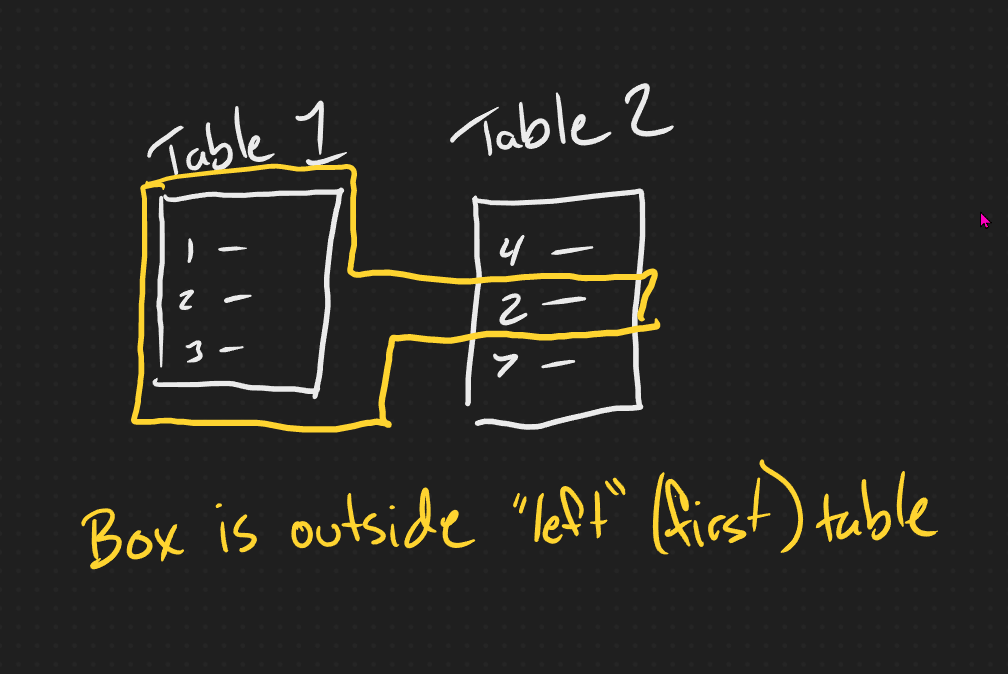 Table 1
1 —
2 —
3 —
Table 2
4 —
2 —
7 —
Box is outside "left" (first) table